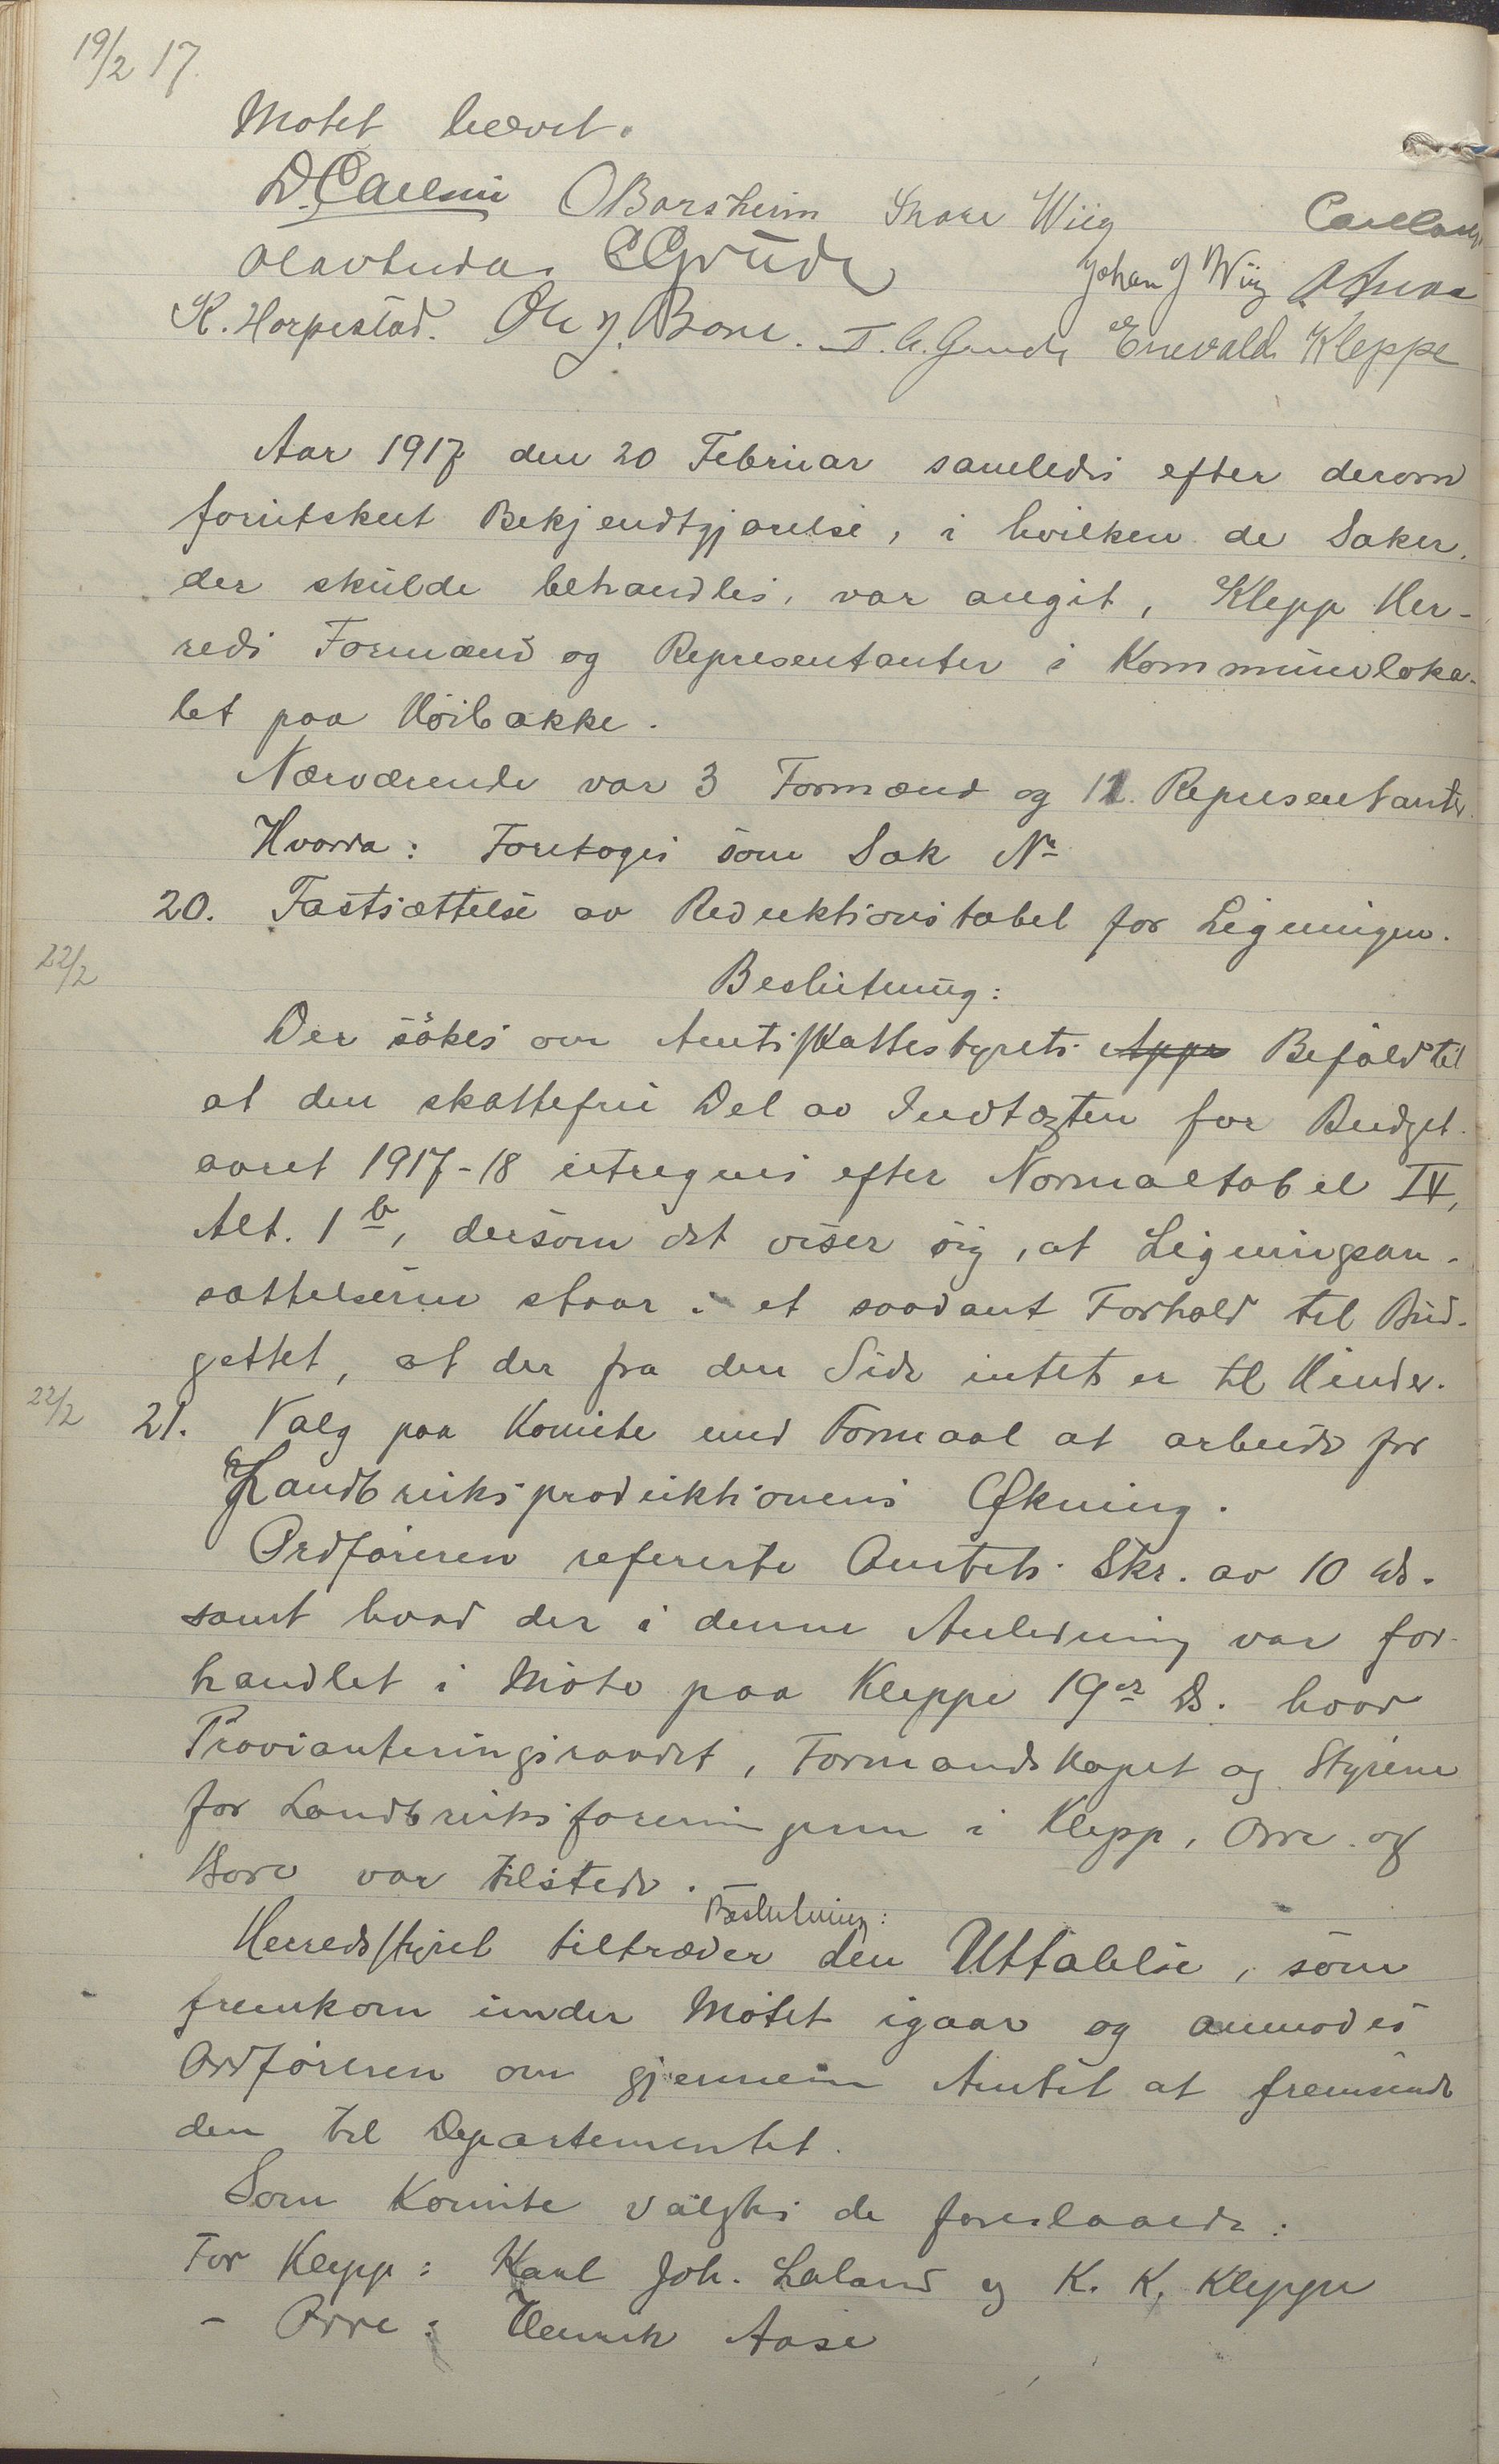 19/2 17.
Møtet hævet.
O Borsheim Snorre Wiig
Johan J Wiig
K. Horpestad. Ole J. Bore. T. A. Grude Enevald Kleppe
Aar 1917 den 20 Februar samledes efter derom
forutskut Bekjendtgjørelse, i hvilken de Saker,
der skulde behandles, var angit, Klepp Her-
reds Formænd og Representanter i Kommuneloka-
let paa Høibakke.
Nærværende var 3 Formænd og 11. Representanter.
Hvorda: Foretoges som Sak Nr
20. Fastsættelse av Reduktionstabel for Ligningen.
22/2
Beslutning:
Der søkes om Amtsskattestyrets Appr Bifald til
at den skattefrie Del av Indtægten for Budget-
aaret 1917-18 utregnes efter Normaltabel IV,
Alt. 1 b, dersom det viser sig, at Ligningsan-
sættelserne staar i et saadant Forhold til Bud-
gettet, at der fra den Side intet er til Hinder.
22/2 21. Valg paa Komite med Formaal at arbeide for
Landbruksproduktionens Økning.
Ordføreren refererte Amtets Skr. av 10 ds.
samt hvad der i denne Anledning var for-
handlet i Møte paa Kleppe 19de ds. hvor
Provianteringsraadet, Formandskapet og Styrerne
for Landbruksforeningerne i Klepp, Orre og
Bore var tilstede.
Beslutning:
Herredsstyret tiltræder den Uttalelse, som
fremkom under Møtet igaar og anmodes
Ordføreren om gjennem Amtet at fremsende
den til Departementet.
Som Komite valgtes de foreslaaede:
For Klepp: Karl Joh. Laland og K. K. Kleppe
- Orre: Henrik Aase